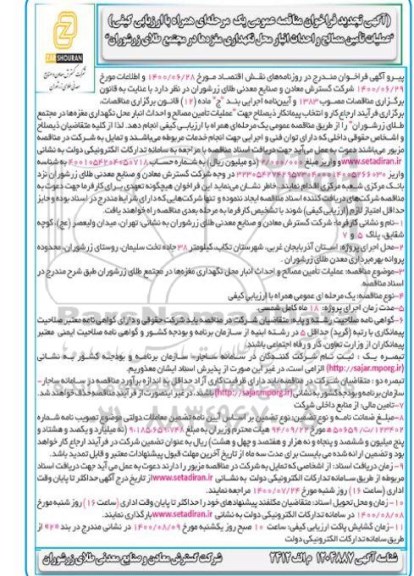 (آگهی تجدید فراخوان مناقصه عمومی یک مرحله‌ای همراه با ارزیابی کیفی)
"عملیات تأمین مصالح و احداث انبار محل نگهداری مغزه‌ها در مجتمع طلای زرشوران"
ZARSHOURAN
پیرو آگهی فراخوان مندرج در روزنامه‌های نقش اقتصاد مورخ ۱۴۰۰/۰۶/۲۸ و اطلاعات مورخ
۱۴۰۰/۰۶/۲۹ شرکت گسترش معادن و صنایع معدنی طلای زرشوران در نظر دارد با عنایت به قانون
برگزاری مناقصات مصوب ۱۳۸۳ و آیین‌نامه اجرایی بند "ج" ماده (۱۲) قانون برگزاری مناقصات،
برگزاری فرآیند ارجاع کار و انتخاب پیمانکار ذیصلاح جهت "عملیات تأمین مصالح و احداث انبار محل نگهداری مغزه‌ها در مجتمع
طلای زرشوران" را از طریق مناقصه عمومی یک مرحله‌ای همراه با ارزیابی کیفی انجام دهد. لذا از کلیه متقاضیان ذیصلاح
و اشخاص حقوقی داخلی که دارای توان فنی و اجرایی جهت انجام خدمات مربوطه می‌باشند و تمایل به شرکت در مناقصه
مزبور می‌باشند دعوت به عمل می‌آید جهت دریافت اسناد مناقصه با مراجعه به سامانه تدارکات الکترونیکی دولت به نشانی
www.setadiran.ir و واریز مبلغ ۲/۰۰۰/۰۰۰ (دو میلیون ریال) به شماره حساب
در وجه شرکت گسترش معادن و صنایع معدنی طلای زرشوران نزد
بانک مرکزی اقدام نمایند. خاطر نشان می‌نماید این فراخوان هیچگونه تعهدی برای کارفرما جهت دعوت به
مناقصه شرکت‌های دریافت کننده اسناد مناقصه ایجاد ننموده و تنها شرکت‌هایی که دارای شرایط مندرج در اسناد بوده و حایز
حداقل امتیاز لازم (ارزیابی کیفی) شوند با تشخیص کارفرما به مرحله بعدی مناقصه راه خواهند یافت.
۱-نام و نشانی کارفرما: شرکت گسترش معادن و صنایع معدنی طلای زرشوران به نشانی: تهران، میدان ولیعصر (عج)، کوچه
شقایق، پلاک ۵ و ۷
۲-محل اجرای پروژه: استان آذربایجان غربی، شهرستان تکاب، کیلومتر ۳۸ جاده تخت سلیمان، روستای زرشوران، محدوده
پروانه بهره‌برداری معدن طلای زرشوران.
۳-موضوع مناقصه: عملیات تأمین مصالح و احداث انبار محل نگهداری مغزه‌ها در مجتمع طلای زرشوران طبق شرح مندرج در
اسناد مناقصه.
۴-نوع مناقصه: یک مرحله ای عمومی همراه با ارزیابی کیفی
۵-مدت زمان اجرای پروژه: ۱۸ ماه کامل شمسی
۶-گواهی نامه صلاحیت رشته و پایه: متقاضیان شرکت در مناقصه باید شرکت حقوقی و دارای گواهی‌نامه معتبر صلاحیت
پیمانکاری با رتبه (گرید) حداقل ۵ در رشته ابنیه از سازمان برنامه و بودجه کشور و گواهی نامه صلاحیت ایمنی معتبر
پیمانکاران از وزارت تعاون، کار و رفاه اجتماعی باشند.
تبصره یک: ثبت نام شرکت کنندگان در سامانه ساجار- سازمان برنامه و بودجه کشور به نشانی
(http://sajar.mporg.ir) الزامی است، در غیر این صورت از پذیرش اسناد ایشان معذوریم.
تبصره دو: متقاضیان شرکت در مناقصه باید دارای ظرفیت کاری آزاد حداقل به اندازه برآورد مناقصه در سامانه ساجار-
سازمان برنامه و بودجه کشور به نشانی (http://sajar.mporg.ir) باشند، در غیر اینصورت از فرآیند مناقصه حذف خواهند شد.
۷-تامین مالی: از منابع داخلی شرکت
۸-مبلغ ضمانت نامه و نوع تضمین: نوع تضمین بر اساس آیین نامه تضمین معاملات دولتی موضوع تصویب نامه شماره
۱۲۳۴۰۲/ت۵۰۶۵۹ه مورخ ۹۴/۰۹/۲۲ هیأت محترم وزیران به مبلغ ۹,۱۸۵,۶۵۹,۷۴۸ (نه میلیارد و یکصد و هشتاد و
پنج میلیون و ششصد و پنجاه و نه هزار و هفتصد و چهل و هشت) ریال به عنوان تضمین شرکت در فرآیند ارجاع کار خواهد
بود و تضمین ارائه شده می بایست برای مدت سه ماه از تاریخ آخرین مهلت قبول پیشنهادات معتبر و قابل تمدید باشد.
۹-زمان دریافت اسناد: از اشخاصی که تمایل به شرکت در مناقصه مزبور را دارند دعوت به عمل می آید جهت دریافت اسناد
مربوطه از طریق سامانه تدارکات الکترونیکی دولت به نشانی www.setadiran.ir از تاریخ درج آگهی حداکثر تا پایان وقت
اداری (ساعت ۱۶) روز شنبه مورخ ۱۴۰۰/۰۷/۲۴ مراجعه نمایند.
۱۰-زمان و محل تحویل اسناد: متقاضیان مکلفند پیشنهادهای خود را حداکثر تا پایان وقت اداری (ساعت ۱۶) روز شنبه مورخ
۱۴۰۰/۰۸/۰۸ در سامانه تدارکات الکترونیکی دولت به نشانی www.setadiran.ir بارگذاری نمایند.
۱۱-زمان گشایش پاکت ارزیابی کیفی: ساعت ۱۰ صبح روز یکشنبه مورخ ۱۴۰۰/۰۸/۰۹ در نشانی مندرج در بند از
طریق سامانه تدارکات الکترونیکی دولت
شناسه آگهی ۱۲۰۴۸۸۷ م الف ۲۴۱۲ شرکت گسترش معادن و صنایع معدنی طلای زرشوران